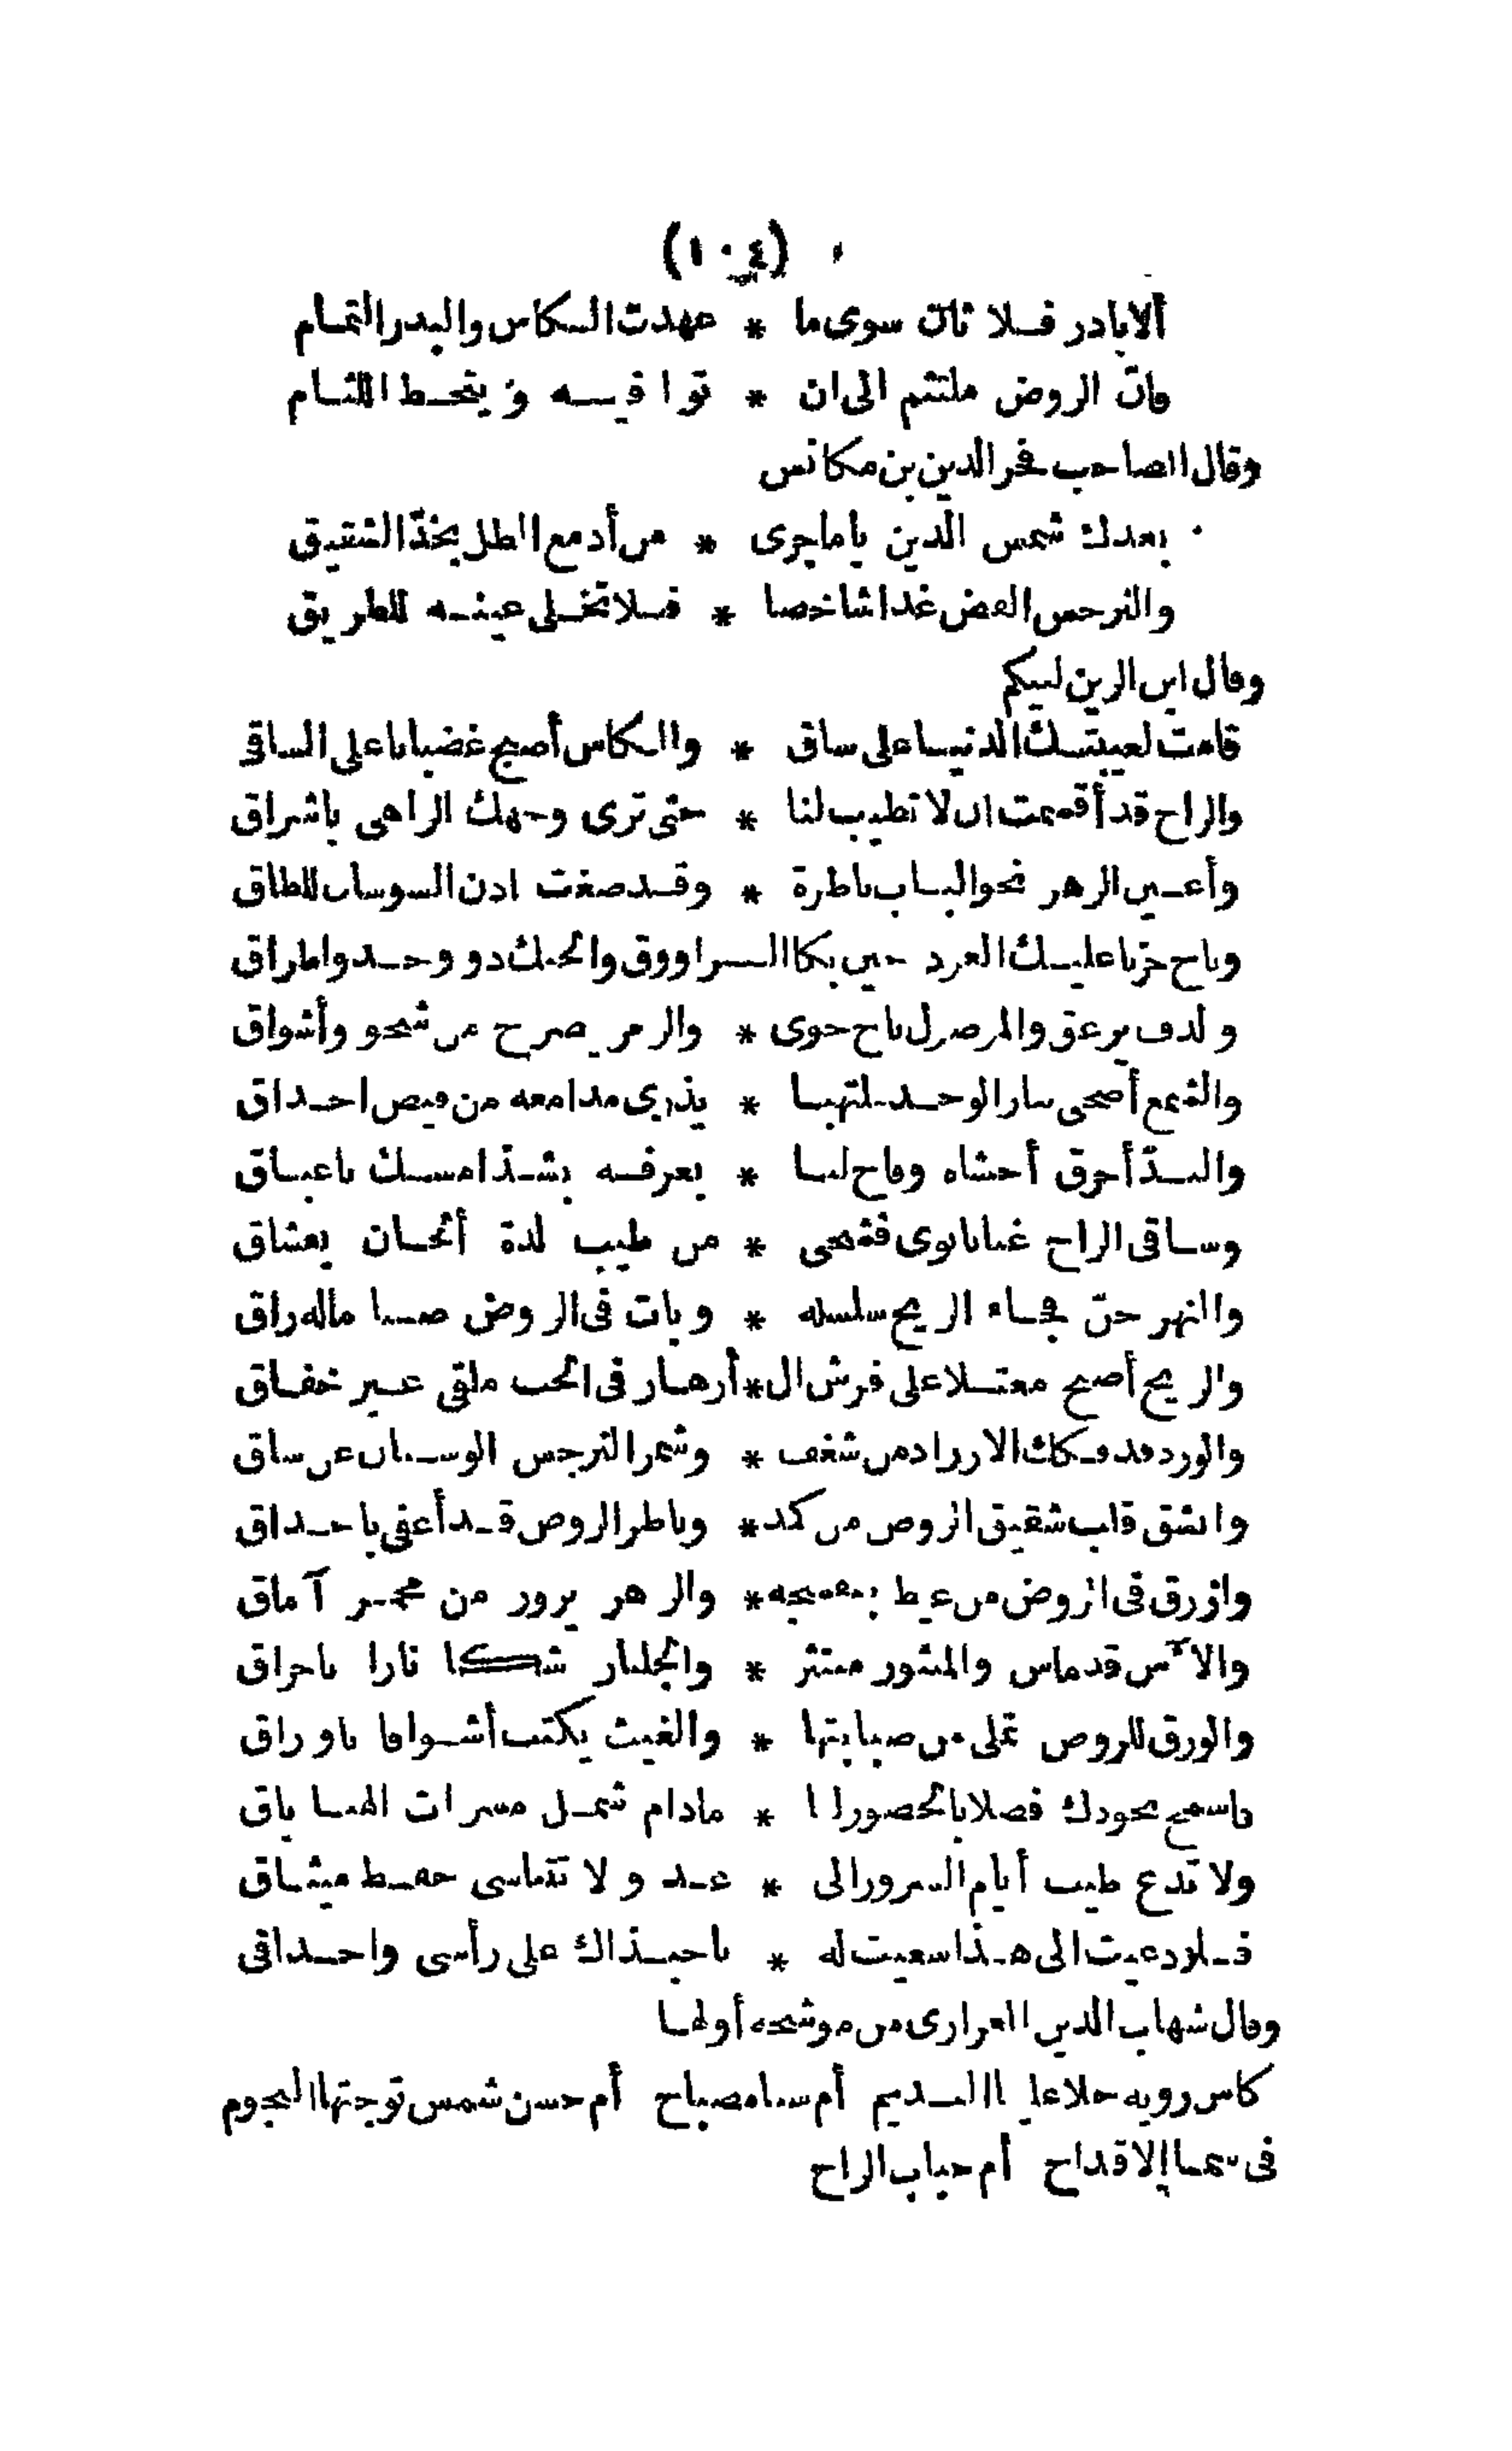 (١٠٤)
ألا بادر فلا ثان سوى ما * عهدت الكاس والبدر التمام
فان الروض ملتثم الى ان * توافيه فينحط اللثام
وقال الصاحب فخر الدين بن مكانس
بعدك شمس الدين يا ما جرى * من أدمع الطل بخدّ الشقيق
والنرجس الغض غدا شاخصا * فلا تخلى عينه للطريق
وقال ابن الزين لبيكم
قامت لغيبتك الدنيا على ساق * والكاس أصبح غضبانا على الساقى
والراح قد أقسمت ان لا تطيب لنا * حتى ترى وجهك الزاهى باشراق
وأعين الزهر نحو الباب ناظرة * وقد صغت اذن السوسان للطاق
وناح حزنا عليك العود حين بكا الـ ـراووق والجنك ذو وجد واطراق
والدف يزعق والمرصل ناح جوى * والزمر يصرح من شجو وأشواق
والشمع أضحى بنار الوجد ملتهبا * يذرى مدامعه من فيض احداق
والند أحرق أحشاه وفاح لنا * بعرفه بشذا مسك باعباق
وساقى الراح غنانا نوى فشجى * من طيب لذة ألحان بعشاق
والنهر جنّ فجاء الريح سلسله * وبات فى الروض صبا ماله راق
والريح أصبح معتلا على فرش الـ * أزهار فى الحب ملقى غير خفاق
والورد قد فكك الازرار من شغف * وشمر النرجس الوسنان عن ساق
وانشق قلب شقيق الروض من كمد * وناظر الروض قد أعفى باحداق
وازرق فى الروض من غيظ بنفسجه * والزهر يزور من محمر آماق
والآس قد ماس والمنثور منتثر * والجلنار شكا نارا باحراق
والورق للروض تملى من صبابتها * والغيث يكتب أشواقا باوراق
فاسمح بجودك فضلا بالحضور لنا * مادام شمل مسرات الهنا باق
ولا تدع طيب أيام السرور الى * غد ولا تتناسى حفظ ميثاق
فلو دعيت الى هذا سعيت له * يا حبذاك على رأسى واحداقى
وقال شهاب الدين العزازى من موشحة أولها
كاس رويه جلا علينا النديم أم سنا مصباح أم حسن شمس توجتها النجوم
فى سما الاقداح أم حباب الراح